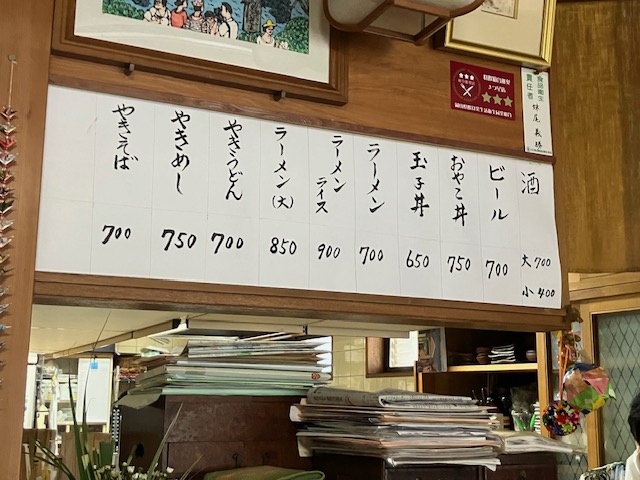 酒
大 700
小 400
ビール
700
おやこ丼
750
玉子丼
650
ラーメン
700
ラーメン
ライス
900
ラーメン(大)
850
やきうどん
700
やきめし
750
やきそば
700
食品衛生
責任者